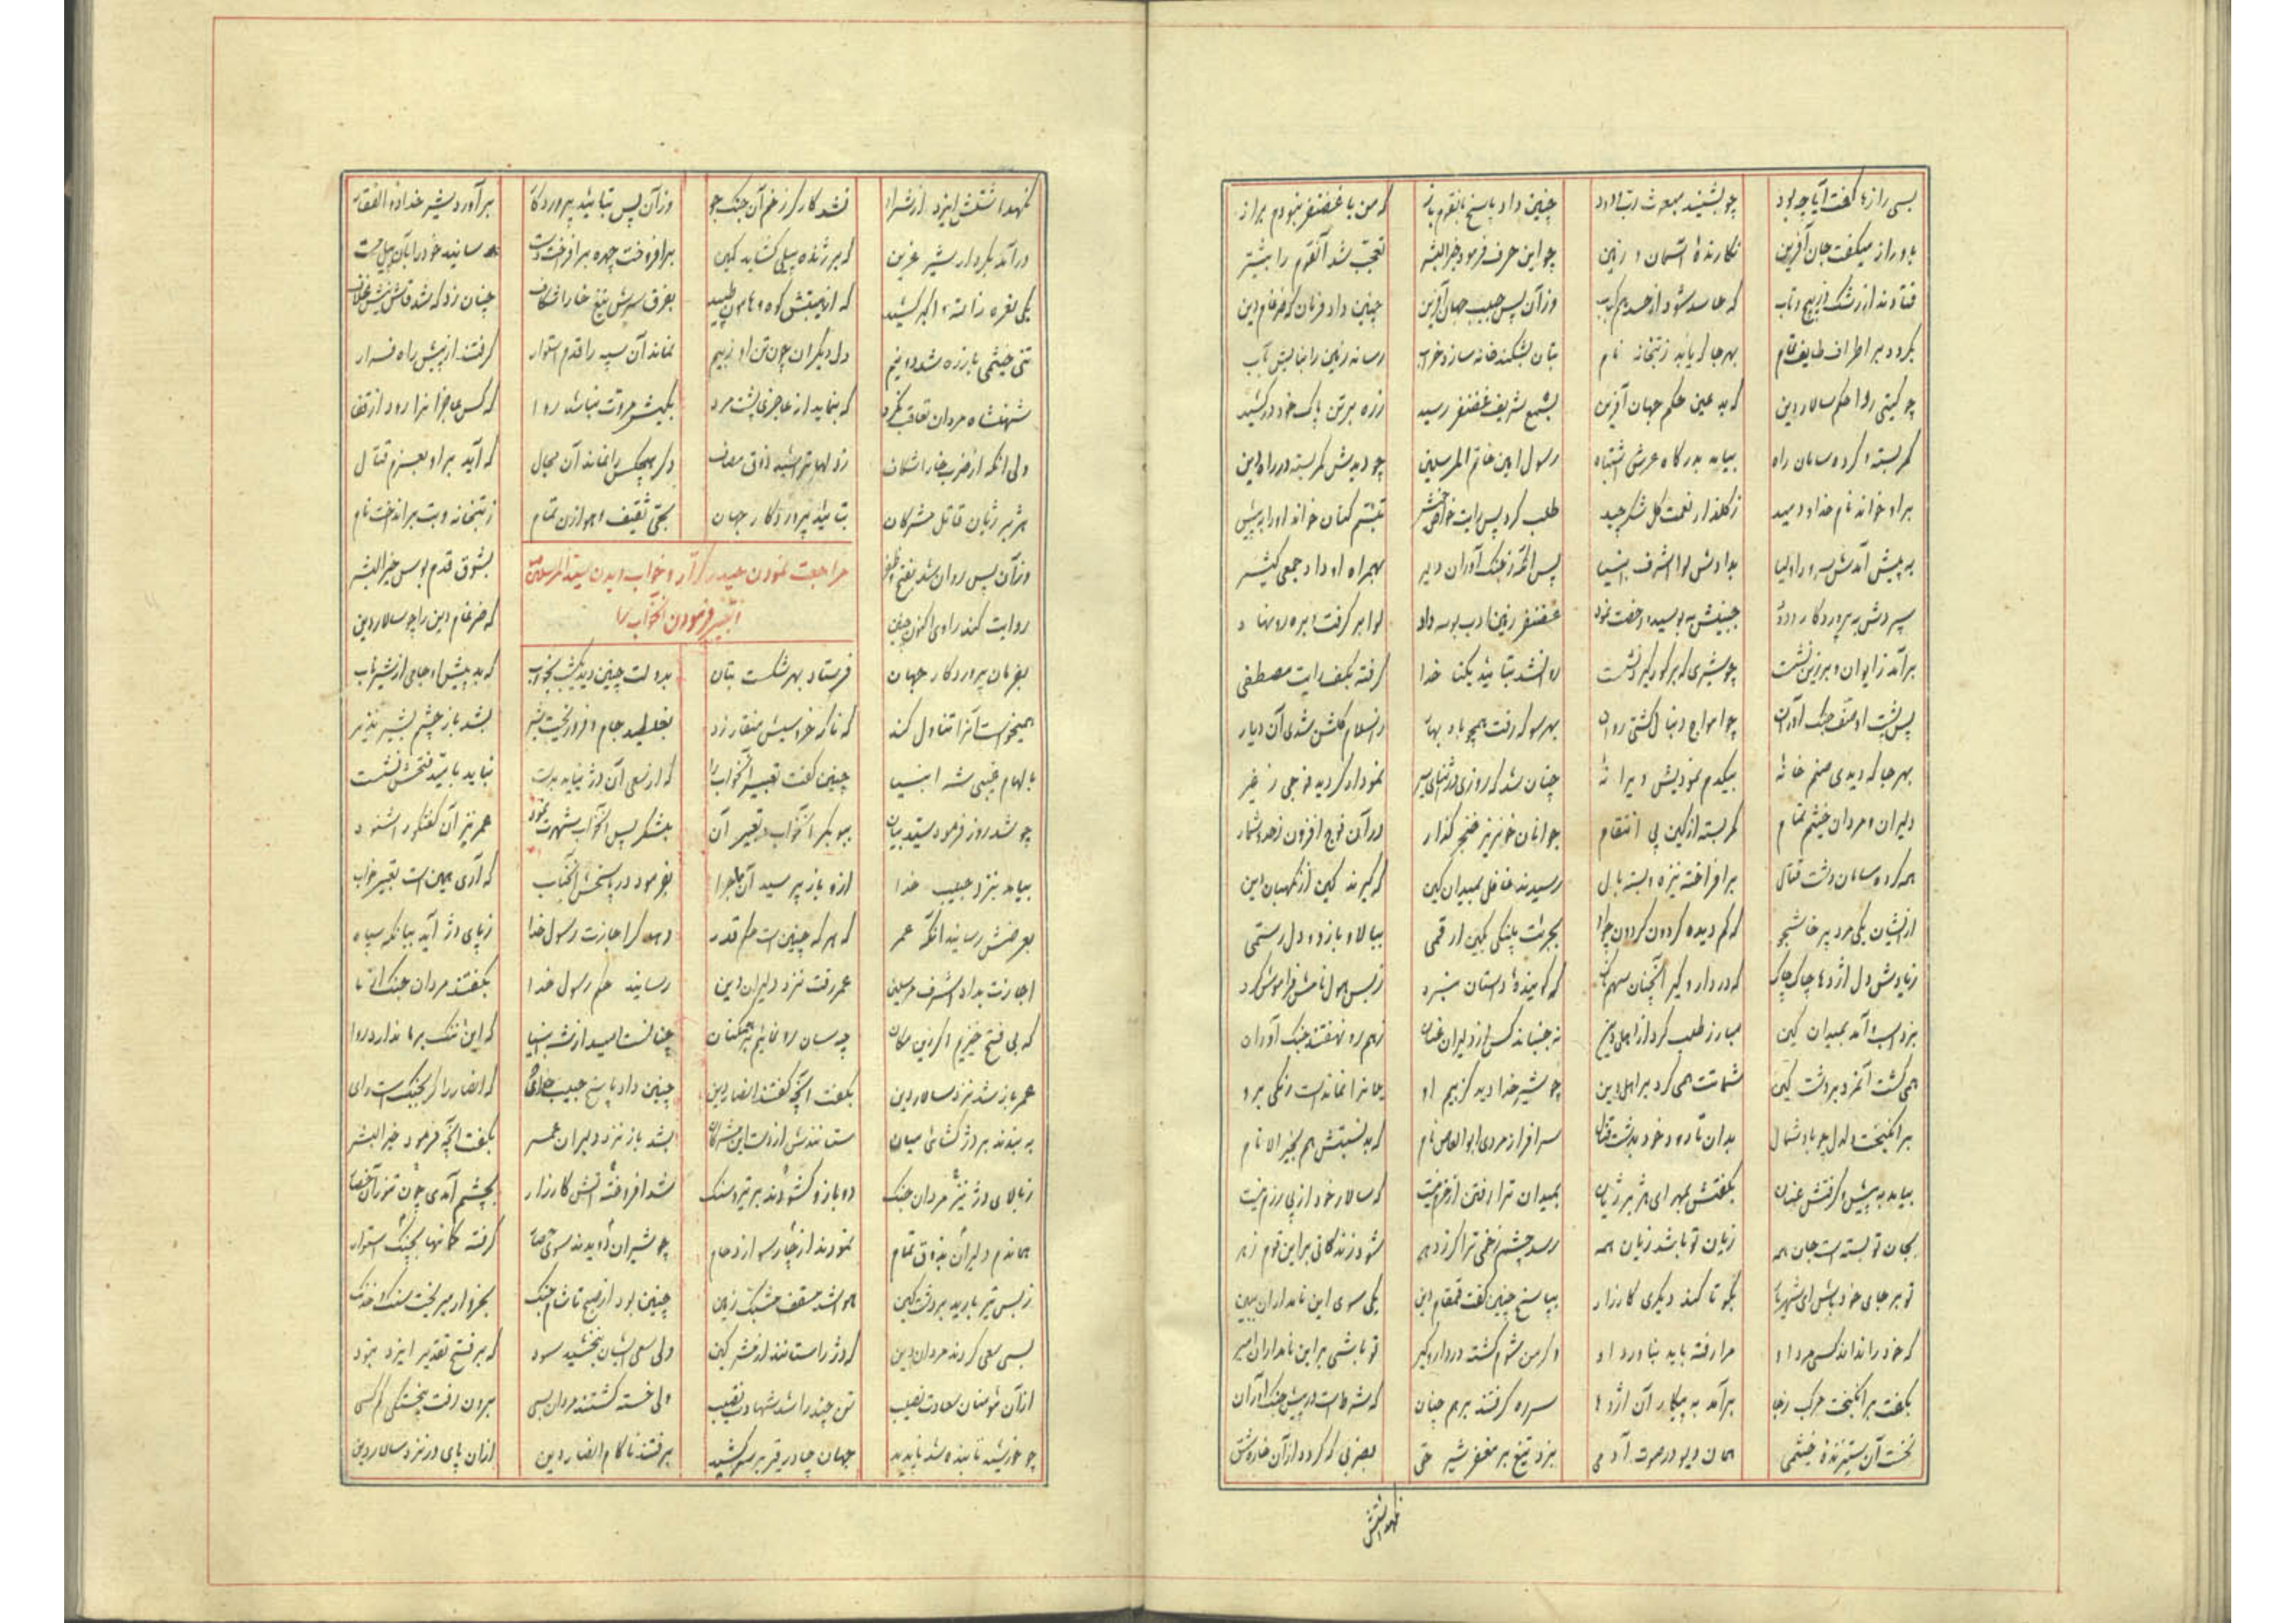 بسی رازها گفت آیا چه بود چو بشنید مبعوث رب ودود چنین داد پاسخ بقوم باز که من با غضنفر نبودم براز
باو راز میگفت جان آفرین نگارندهٔ آسمان و زمین چو این حرف فرمود خیر البشر تعجب شد آنقوم را بیشتر
فتادند از رشک در پیچ و تاب که حاسد شود از حسد دل کباب وزآن پس حبیب جهان آفرین چنین داد فرمان که ضرغام دین
بگردد بر اطراف طایف تمام بهر جا که یابد ز بتخانه نام بتان بشکند خانه سازد خراب رساند زمین را بنابش بآب
چو گیتی روا حکم سالار دین که بد عین حکم جهان آفرین بسمع شریف غضنفر رسید زره بر تن پاک خود درکشید
کمر بسته و کرده سامان راه بیامد بدرگاه عرش اشتباه رسول امین خاتم المرسلین چو دیدش کمر بسته در راه دین
براو خواند نام خدا و دمید ز گلذار نعمت گل شکر چید طلب کرد پس رایت خاص خویش تبسم کنان خواند او را به پیش
به پیش آمدش سرور اولیا بدادش لوا اشرف انبیا پس آنگه ز جنگ آوران دلیر بهمراه او داد جمعی کثیر
سپردش به پروردگار ودود جبینش ببوسید و رخصت نمود غضنفر زمین ادب بوسه داد لوا بر گرفت و بره رو نهاد
برآمد ز ایوان و بر زین نشست چو شیری که بر کوه گیرد نشست روان شد بتایید یکتا خدا گرفته بکف رایت مصطفی
پس پشت او صف جنگ آوران چو امواج دنبال کشتی روان بهر سو که رفت همچو باد بهار ز اسلام گلشن شدی آن دیار
بهر جا که دیدی صنم خانهٔ بیکدم نمودیش ویرانهٔ چنان شد که روزی در اثنای سیر نمودار گردید فوجی ز غیر
دلیران و مردان خیثم تمام کمر بسته از کین پی انتقام جوانان خونریز خنجر گذار در آن فوج افزون ز حد و شمار
همه کرده سامان دشت قتال برافراخته نیزه و بسته بال رسیدند غافل بمیدان کین که گیرند کین از نگهبان دین
از ایشان یکی مرد پرخاشجو که کم دیده گردون گردون چو او بجرئت پلنگی بکین ارقمی ببالا و بازو و دل رستمی
زیادش دل اژدها چاک چاک که در دار و گیر آنچنان سهمناک که گویندهٔ داستان نبرد ز بس هول نامش فراموش کرد
بزد اسب و آمد بمیدان کین مبارز طلب کرد از اهل دین نجنباند کس از دلیران عنان زهم رو نهفتند جنگ آوران
همی گشت آنمرد بر دشت کین شماتت همی کرد بر اهل دین چو شیر خدا دید کز بیم او یلان را نماندست رنگی برو
برانگیخت دلدل چو باد شمال بدان تا رود خود بدشت قتال سرافراز مردی ابو العاص نام که بد نسبتش هم بخیر الانام
بیامد به پیش و گرفتش عنان بگفتش بمهر ای هژبر ژیان بمیدان ترا رفتن از حزم نیست که سالار خود از پی رزم نیست
بجان تو بسته است جان همه زیان تو باشد زیان همه رسد چشم زخمی ترا گر زدهر شود زندگانی بر این قوم زهر
تو بر جای خود باش ای شهریار بگو تا کند دیگری کارزار بپاسخ چنین گفت قمقام دین یکی سوی این نامداران ببین
که خود راندانند کس مرد او مرا رفته باید بناورد او وگر من شوم کشته در دار و گیر تو باشی بر این نامداران امیر
بگفت و برانگیخت مرکب ز جا برآمد به پیکار آن اژدها سر ره گرفتند بر هم چنان که شرط است در پیش جنگ آوران
نخست آن ستیزندهٔ خیثمی همان دیو در صورت آدمی بزد تیغ بر مغفر شیر حق بضربی که گردد از آن خاره شق
نگهداشتش
نگهداشتش ایزد از شر او نشد کارگر زخم آن جنگ جو وزآن پس بتایید پروردگار برآورد شیر خدا ذو الفقار
درآمد بکردار شیر عرین که بر ژنده پیلی گشاید کمین برافروخت چهره برافراخت دست رسانید خود را بآن پیل مست
یکی نعره زد الله اکبر کشید که از هیبتش کوه و هامون طپید بفرق سرش تیغ خارا شکاف چنان زد که شد قاش زینش غلاف
تن خیثمی با زره شد دو نیم دل دیگران چون تن او ز بیم نماند آن سپه را قدم استوار گرفتند از پیش راه فرار
شهنشاه مردان تعاقب نکرد که بنماید از عاجزی پشت مرد بکیش مروت نباشد روا که کس عاجزانرا رود از قفا
ولی آنکه از ضرب خارا شکاف زدلها تراشید ذوق مصاف دگر هیچکس را نماند آن مجال که آید براو بعزم قتال
هژبر ژیان قاتل مشرکان بتایید پروردگار جهان بحی ثقیف و هوازن تمام ز بتخانه و بت برانداخت نام
مراجعت نمودن حیدر کرار و خواب دیدن سید المرسلین و تعبیر فرمودن آنخواب را
وزآن پس روان شد بفتح و ظفر بشوق قدم بوس خیر البشر
روایت کند راوی اکنون چنین که ضرغام دین را چو سالار دین
بفرمان پروردگار جهان فرستاد بهر شکست بتان بدولت چنین دید یکشب بخواب که بد پیش او جای از شیر ناب
همیخواست آنرا تناول کند که ناگه خروسیش منقار زد بغلطید جام و فرو ریخت شیر بشد باز چشم بشیر نذیر
بالهام غیبی شه انبیا چنین گفت تعبیر آنخواب را که از سعی آن دژ نیاید بدست نباید بامید فتحش نشست
چو شد روز فرمود سید بیان ببوبکر آنخواب و تعبیر آن بلشکر پس آنخواب شهرت نمود عمر نیز آن گفتگو را شنود
بیامد بنزد حبیب خدا ازو باز پرسید آن ماجرا بفرمود در پاسخش آنجناب که آری همین است تعبیر خواب
بعرضش رسانید آنگه عمر که هر گه چنین است حکم قدر دهد گر اجازت رسول خدا ز پای دژ آید بیانگه سپاه
اجازت بداد اشرف مرسلین عمر رفت نزد دلیران دین رسانید حکم رسول خدا بگفتند مردان جنگ آنما
که بی فتح خیزیم اگر زین مکان چه سان رو نماییم بر همکنان چنانست امید از شه انبیا که این ننگ بر ما ندارد روا
عمر باز شد نزد سالار دین بگفت آنچه گفتند انصار دین چنین داد پاسخ حبیب خدای که انصار را گر بجنگ است رای
به بندند بر دژ گشائی میان ستانندش از دست این مشرکان بشد باز نزد دلیران عمر بگفت آنچه فرمود خیر البشر
ز بالای دژ نیز مردان جنگ دو بازو گشودند بر تیر و سنگ شد افروخته آتش کارزار بچشم آمدی چون تنور آن حصار
همان دم دلیران بذوق تمام نمودند از چارسو ازدحام چو شیران دویدند سوی حصار گرفته کمانها بچنگ استوار
ز بس تیر بارید بر دشت کین هوا شد مسقف مشبک زمین چنین بود از صبح تا شام جنگ بخروار میریخت سنگ و خدنگ
بسی سعی کردند مردان دین که دژ را ستانند از مشرکین ولی سعی ایشان نبخشید سود که بر فتح تقدیر ایزد نبود
از آن مؤمنان سعادت نصیب تن چند را شد شهادت نصیب ولی خسته گشتند مردان بسی برون رفت بی خستگی کم کسی
چو خورشید تابنده شد ناپدید جهان چادر قیر بر سر کشید برفتند ناکام انصار دین از آن پای دژ نزد سالار دین